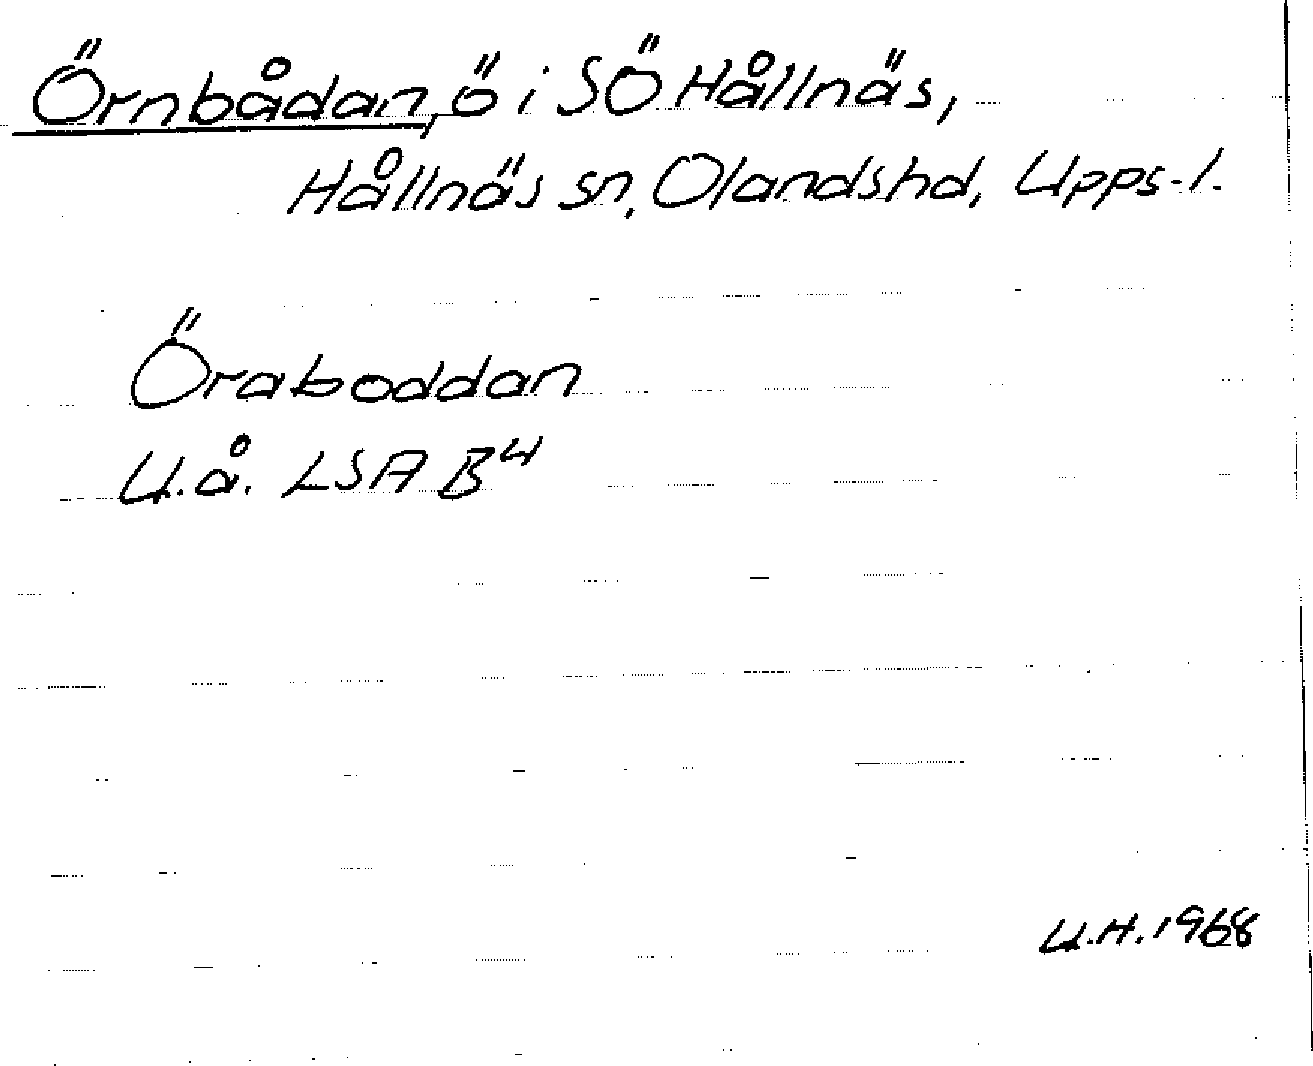 Örnbådan, ö i SÖ Hållnäs,
Hållnäs sn, Olandshd, Upps-l.
Öraboddan
U.å. LSA B4
U.H. 1968